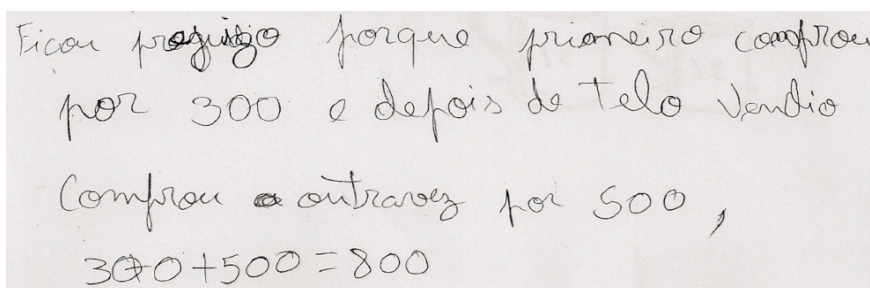 Ficou preguizo porque priomeiro comprou
por 300 e depois de telo vendio
Comprou outravez por 500,
300+500=800